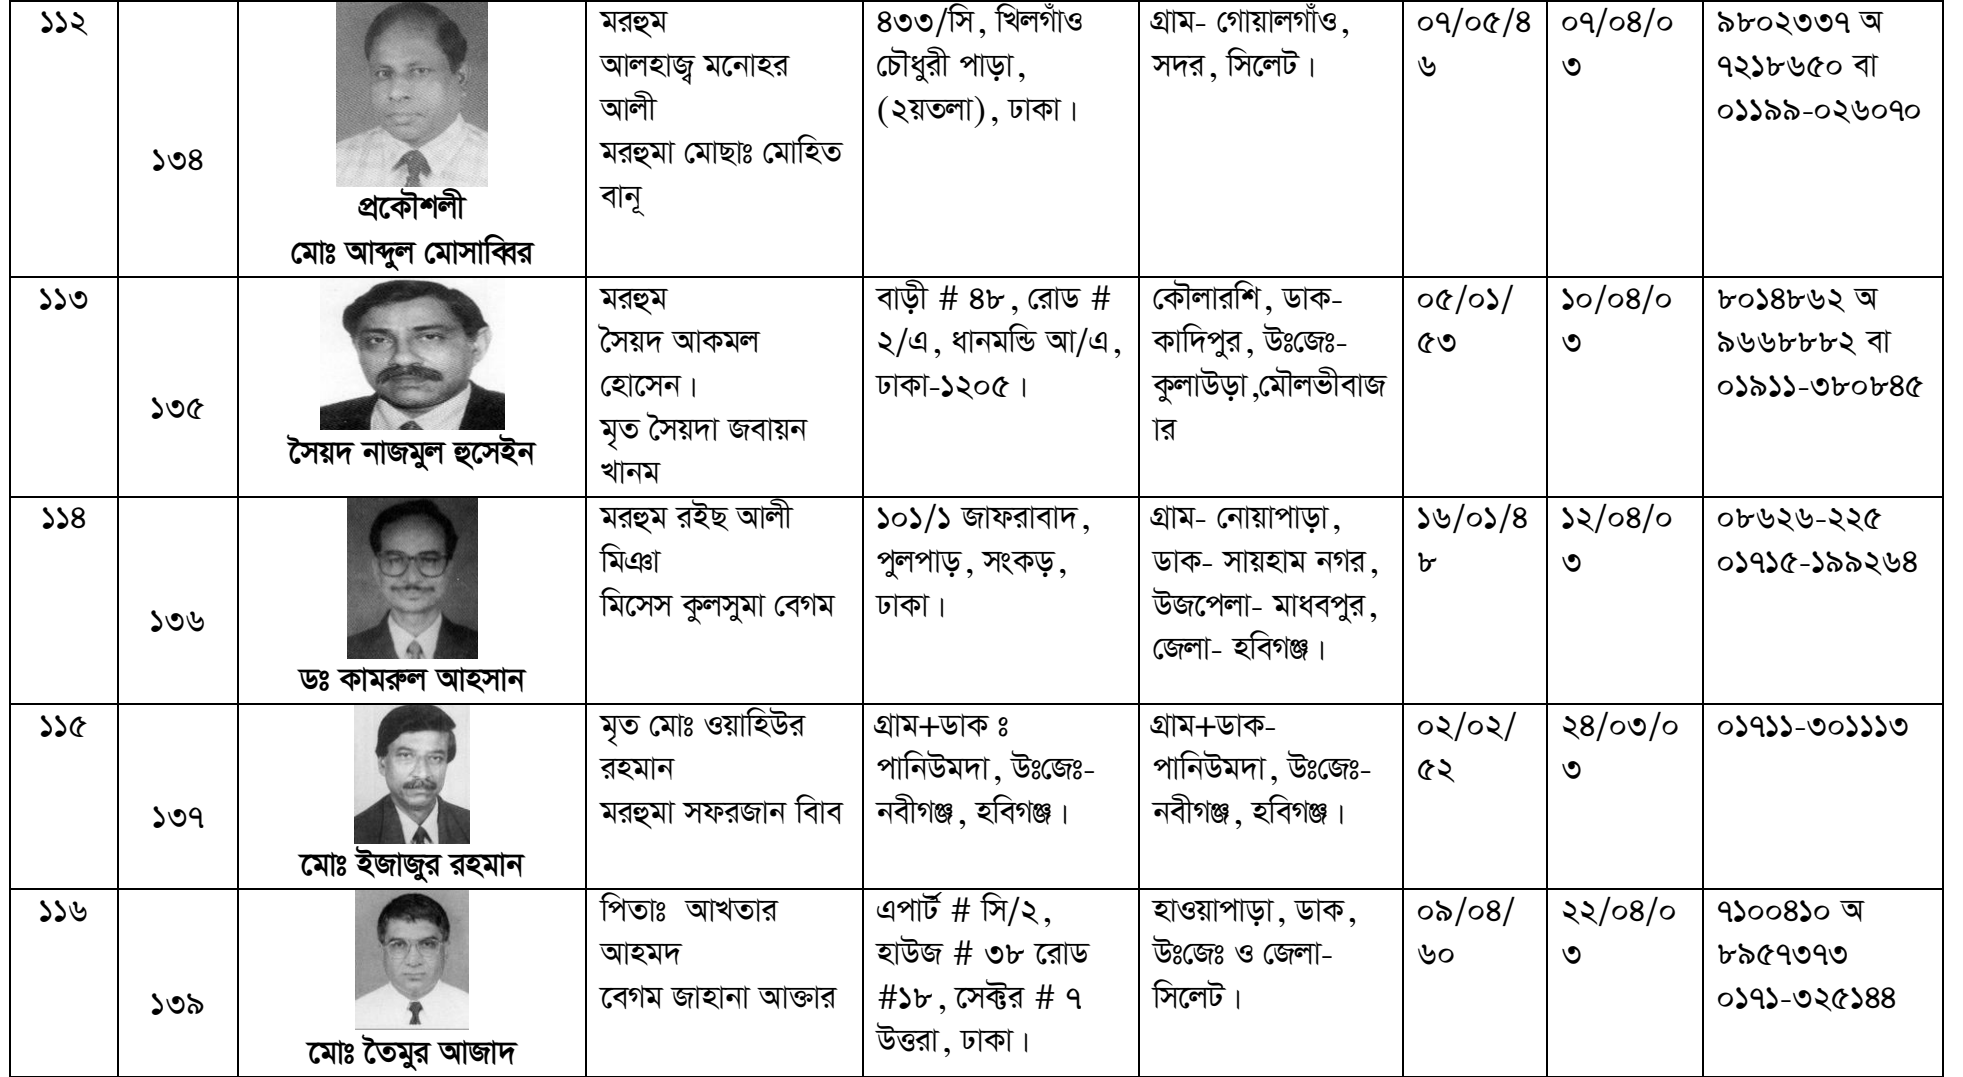 ১১২
১৩৪
প্রকৌশলী
মোঃ আব্দুল মোসাব্বির
মরহুম
আলহাজ্ব মনোহর
আলী
মরহুমা মোছাঃ মোহিত
বানূ
৪৩৩/সি, খিলগাঁও
চৌধুরী পাড়া,
(২য়তলা), ঢাকা।
গ্রাম- গোয়ালগাঁও,
সদর, সিলেট।
০৭/০৫/৪
৬
০৭/০৪/০
৩
৯৮০২৩৩৭ অ
৭২১৮৬৫০ বা
০১১৯৯-০২৬০৭০
১১৩
১৩৫
সৈয়দ নাজমুল হুসেইন
মরহুম
সৈয়দ আকমল
হোসেন।
মৃত সৈয়দা জবায়ন
খানম
বাড়ী # ৪৮, রোড #
২/এ, ধানমন্ডি আ/এ,
ঢাকা-১২০৫।
কৌলারশি, ডাক-
কাদিপুর, উঃজেঃ-
কুলাউড়া,মৌলভীবাজ
ার
০৫/০১/
৫৩
১০/০৪/০
৩
৮০১৪৮৬২ অ
৯৬৬৮৮৮২ বা
০১৯১১-৩৮০৮৪৫
১১৪
১৩৬
ডঃ কামরুল আহসান
মরহুম রইছ আলী
মিঞা
মিসেস কুলসুমা বেগম
১০১/১ জাফরাবাদ,
পুলপাড়, সংকড়,
ঢাকা।
গ্রাম- নোয়াপাড়া,
ডাক- সায়হাম নগর,
উজপেলা- মাধবপুর,
জেলা- হবিগঞ্জ।
১৬/০১/৪
৮
১২/০৪/০
৩
০৮৬২৬-২২৫
০১৭১৫-১৯৯২৬৪
১১৫
১৩৭
মোঃ ইজাজুর রহমান
মৃত মোঃ ওয়াহিউর
রহমান
মরহুমা সফরজান বিাব
গ্রাম+ডাক ঃ
পানিউমদা, উঃজেঃ-
নবীগঞ্জ, হবিগঞ্জ।
গ্রাম+ডাক-
পানিউমদা, উঃজেঃ-
নবীগঞ্জ, হবিগঞ্জ।
০২/০২/
৫২
২৪/০৩/০
৩
০১৭১১-৩০১১১৩
১১৬
১৩৯
মোঃ তৈমুর আজাদ
পিতাঃ আখতার
আহমদ
বেগম জাহানা আক্তার
এপার্ট # সি/২,
হাউজ # ৩৮ রোড
#১৮, সেক্টর # ৭
উত্তরা, ঢাকা।
হাওয়াপাড়া, ডাক,
উঃজেঃ ও জেলা-
সিলেট।
০৯/০৪/
৬০
২২/০৪/০
৩
৭১০০৪১০ অ
৮৯৫৭৩৭৩
০১৭১-৩২৫১৪৪